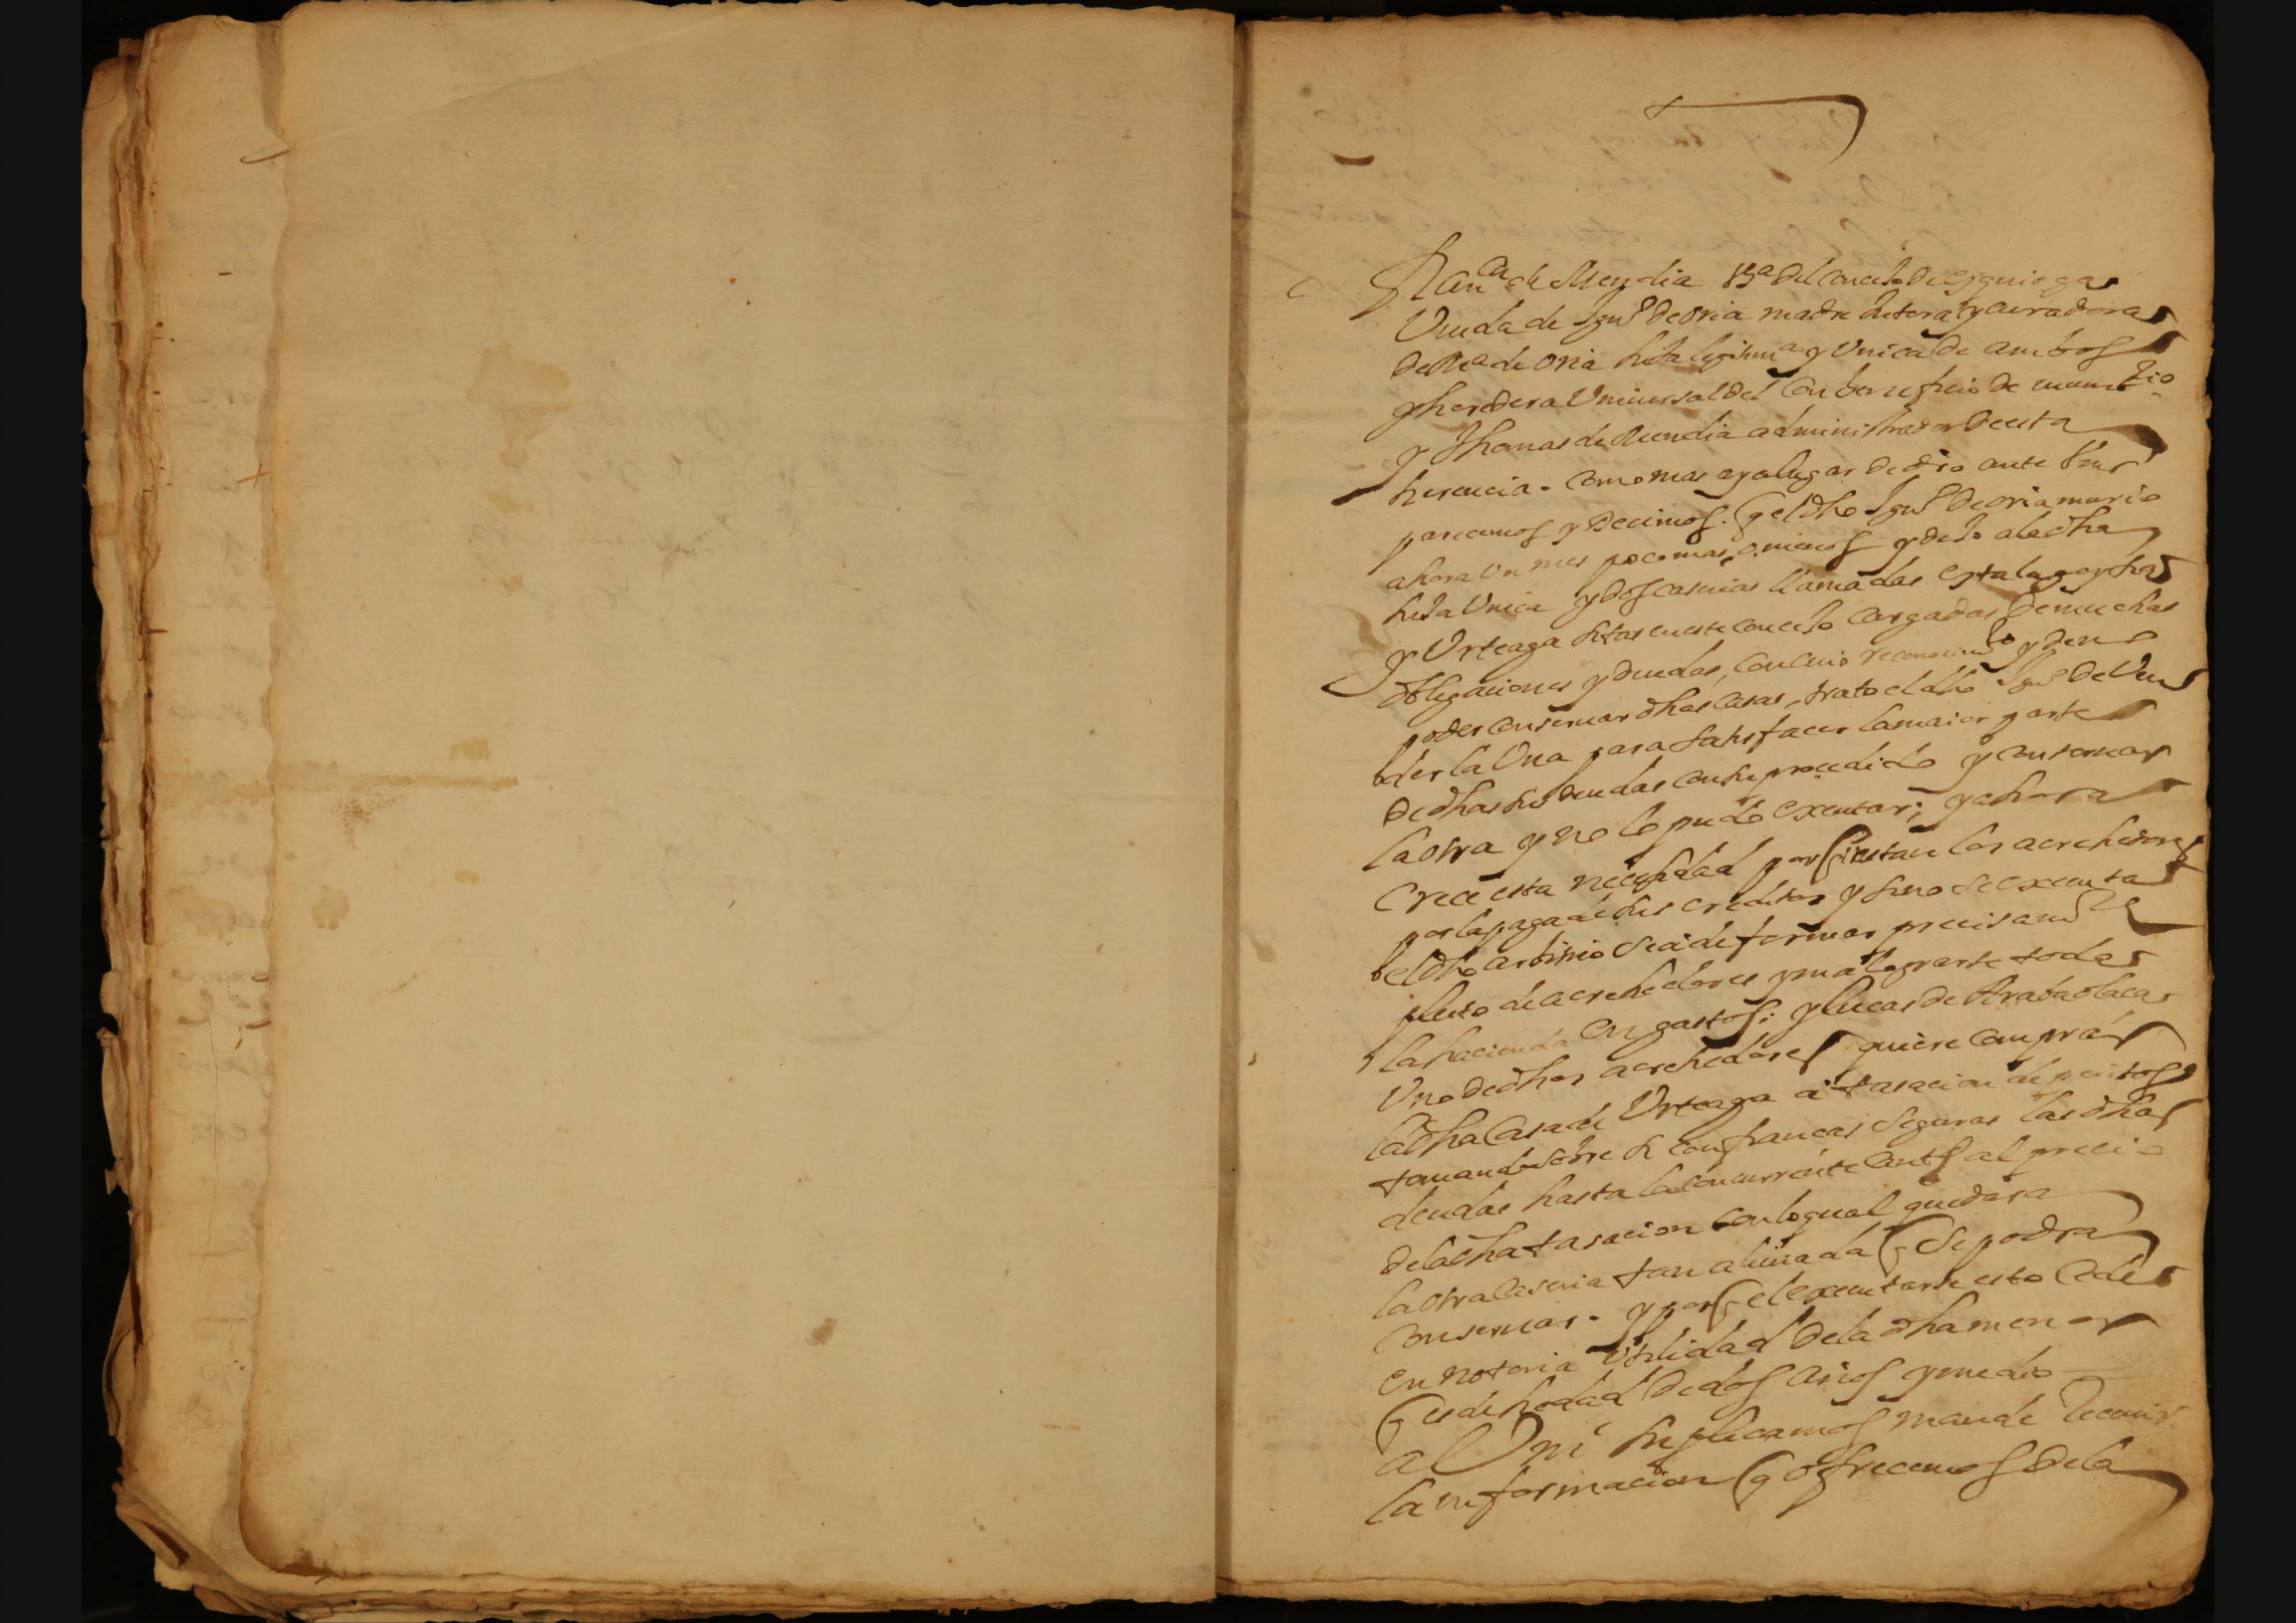 Fran^ca de Mendia v^a del conceJo de ezquioga
Viuda de Ign^o de oria madre tutora y curadora
de M^a de oria hiJa legitim^a y Vnica de ambos
y heredera Vniuersal del con beneficio de inuent^rio
y Thomas de Mendia administrador de esta
herencia. como mas aya lugar de dro ante Vm
parecemos y Decimos. q el dho Ign^o de oria murio
ahora vn mes poco mas, o menos y deJo a la dha
hiJa Vnica y dos caserias llamadas
y Vrteaga sitas en este conceJo cargadas de muchas
obligaciones y deudas, con cuio reconocim^to y de no
poder conseruar dhas casas, trato el dho Ign^o de Ven
der la Vna para satisfacer la maior parte
de dhas sus deudas con su procedido y conseruar
la otra y no lo pudo executar; y ahora
crece esta necesidad por q instan los acrehedores
por la paga de sus creditos y si no se executa
el dho arbitrio se a de formar precisam^te
pleito de acrehedores y malograrse toda
la hacienda en gastos; y lucas de Arabaolaca
Vno de dhos acrehedores quiere comprar
la dha Casa de Vrteaga a tasacion de peritos
tomando sobre si con fiancas seguras las dhas
deudas hasta la concurrente cant^d al precio
de la dha tasacion con lo qual quedara
la otra caseria tan aliuiada q se podra
conseruar. y por q el executarse esto cede
en notoria Vtilidad de la dha menor
q es de hedad de dos años y medio
a Vm suplicamos mande Receuir
la informacion q ofrecemos de la